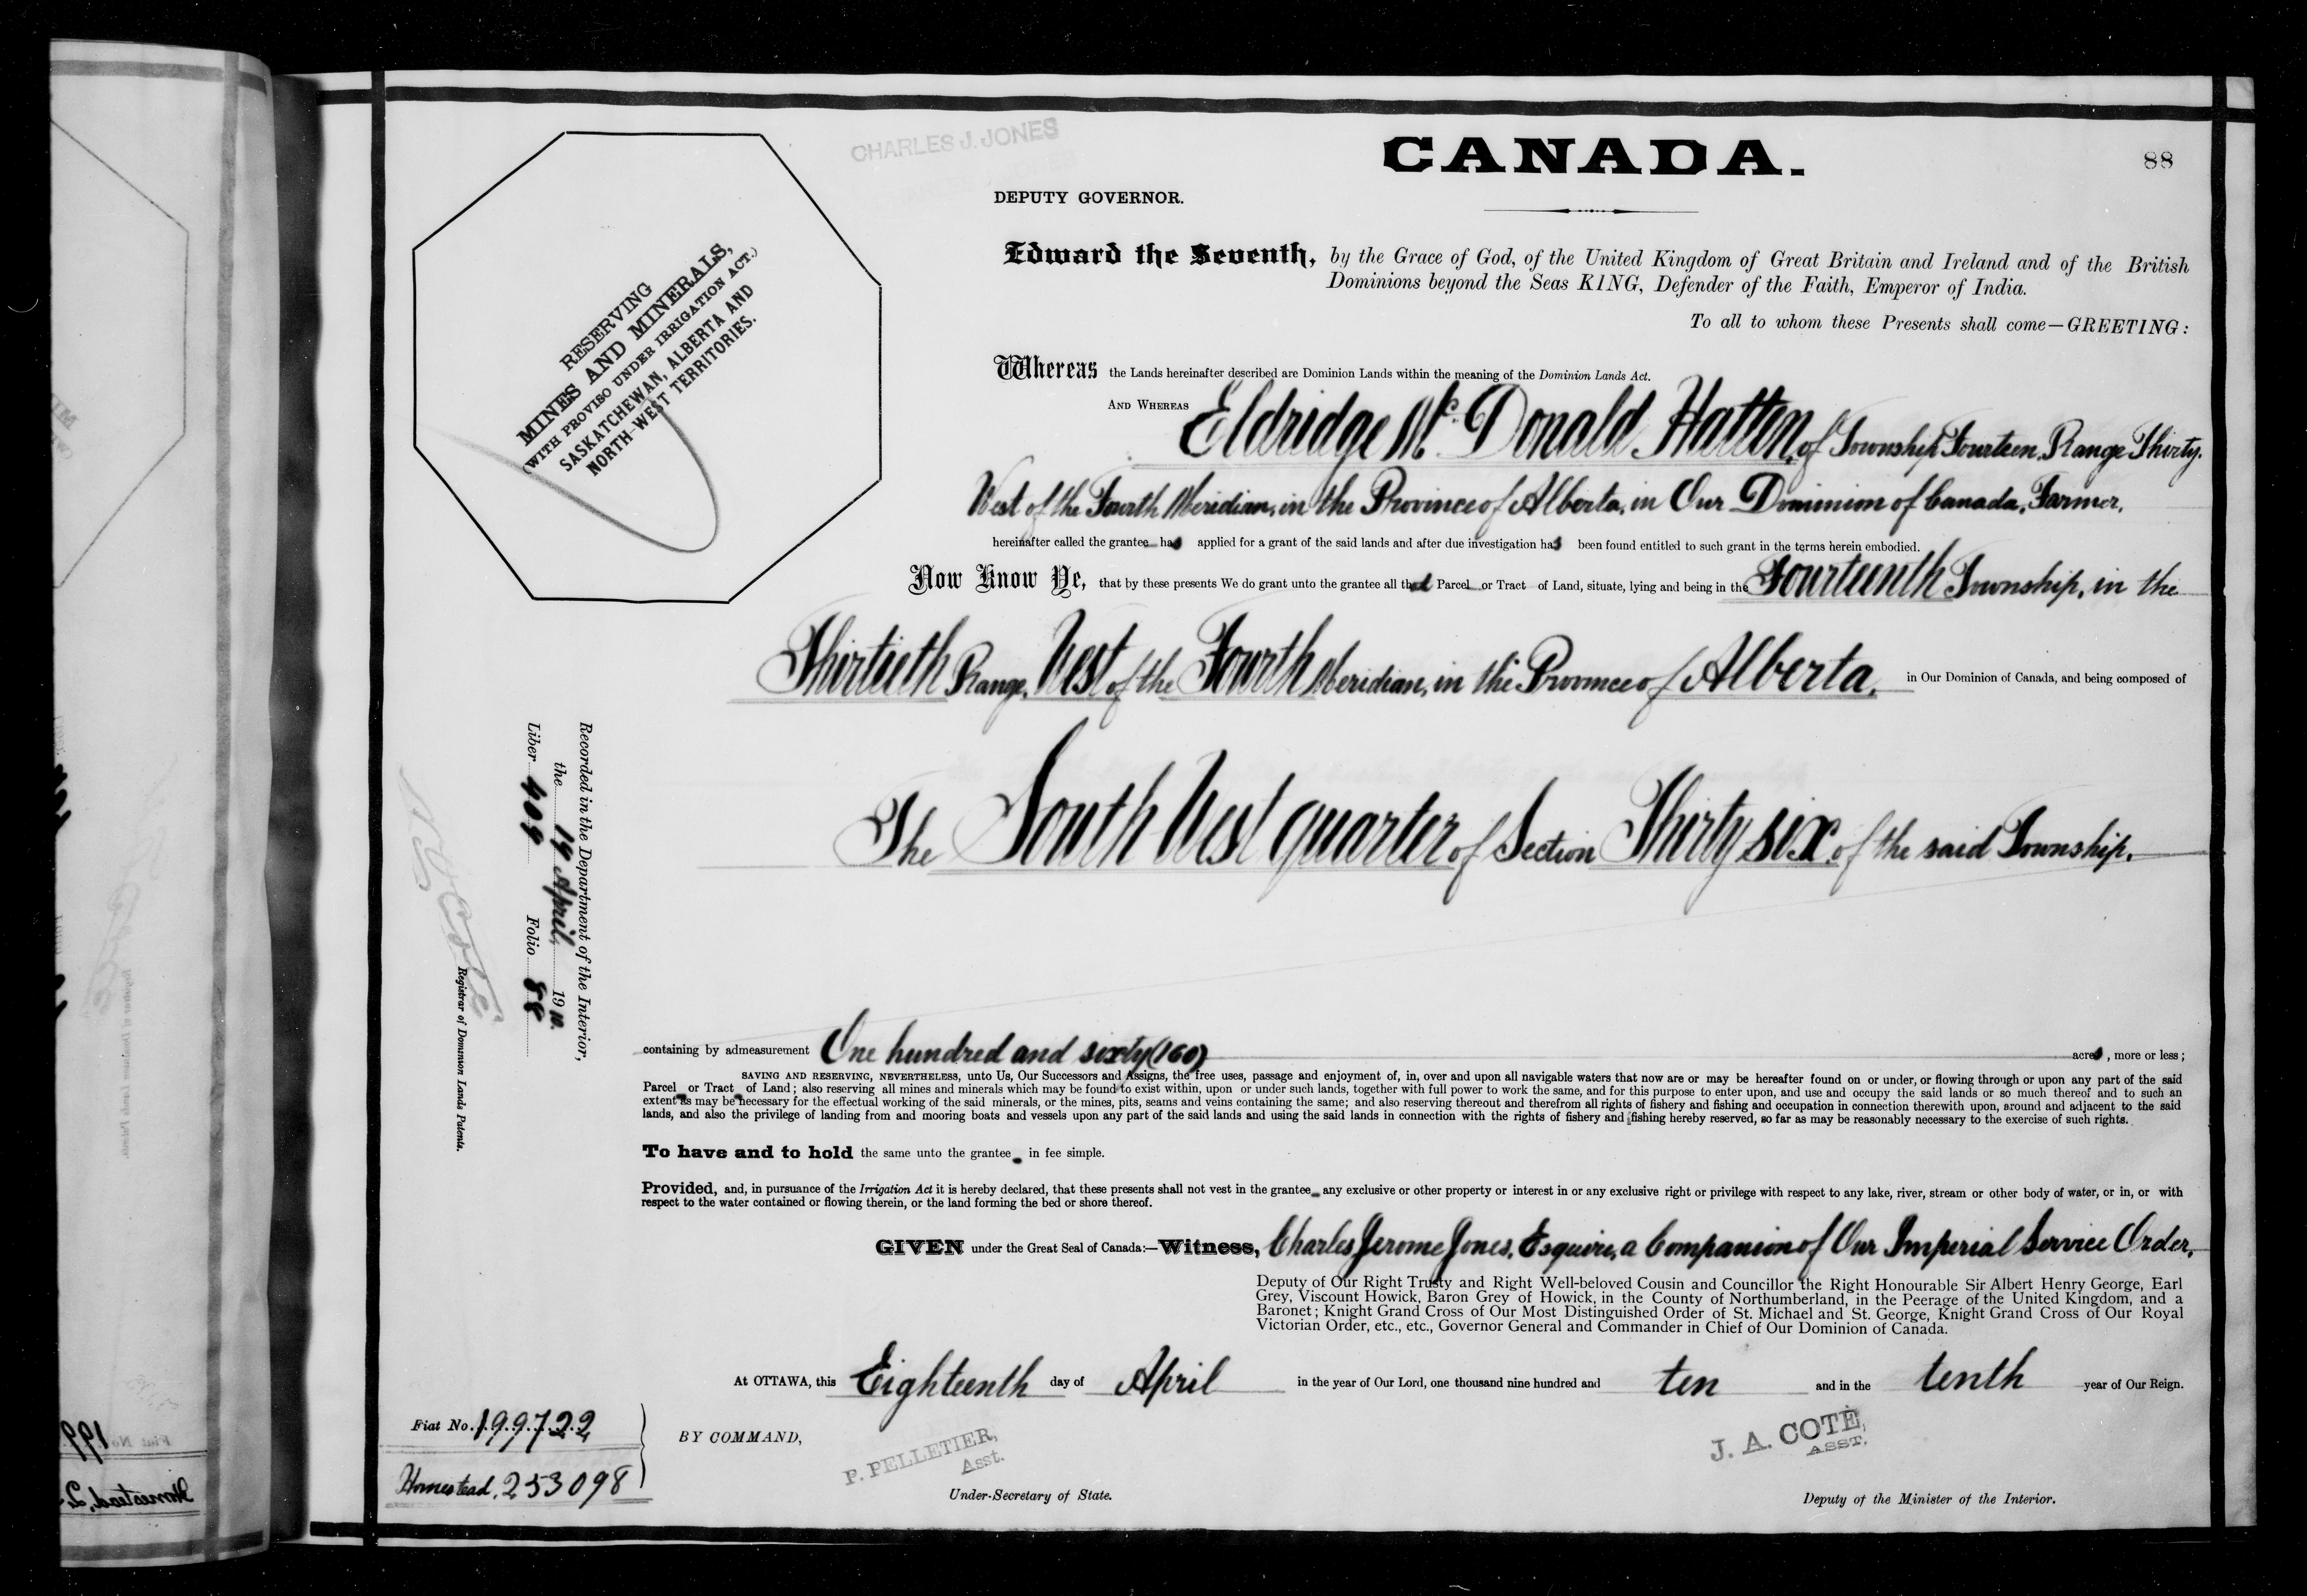 CHARLES J. JONES
CANADA.
88
DEPUTY GOVERNOR.
Edward the Seventh, by the Grace of God, of the United Kingdom of Great Britain and Ireland and of the British
Dominions beyond the Seas KING, Defender of the Faith, Emperor of India.
To all to whom these Presents shall come—GREETING:
RESERVING
MINES AND MINERALS,
(WITH PROVISO UNDER IRRIGATION ACT.)
SASKATCHEWAN, ALBERTA AND
NORTH-WEST TERRITORIES.
Whereas the Lands hereinafter described are Dominion Lands within the meaning of the Dominion Lands Act.
AND WHEREAS Eldridge Mc Donald Hatten, of Township Fourteen, Range Thirty,
West of the Fourth Meridian, in the Province of Alberta, in Our Dominion of Canada, Farmer,
hereinafter called the grantee has applied for a grant of the said lands and after due investigation has been found entitled to such grant in the terms herein embodied.
Now Know Ye, that by these presents We do grant unto the grantee all that Parcel or Tract of Land, situate, lying and being in the Fourteenth Township, in the
Thirtieth Range, West of the Fourth Meridian, in the Province of Alberta, in Our Dominion of Canada, and being composed of
The South West quarter of Section Thirty six of the said Township.
Recorded in the Department of the Interior,
the 19 April 1910.
Liber 409 Folio 88
N O Coté
Registrar of Dominion Lands Patents.
containing by admeasurement One hundred and sixty (160) acres, more or less;
SAVING AND RESERVING, NEVERTHELESS, unto Us, Our Successors and Assigns, the free uses, passage and enjoyment of, in, over and upon all navigable waters that now are or may be hereafter found on or under, or flowing through or upon any part of the said
Parcel or Tract of Land; also reserving all mines and minerals which may be found to exist within, upon or under such lands, together with full power to work the same, and for this purpose to enter upon, and use and occupy the said lands or so much thereof and to such an
extent as may be necessary for the effectual working of the said minerals, or the mines, pits, seams and veins containing the same; and also reserving thereout and therefrom all rights of fishery and fishing and occupation in connection therewith upon, around and adjacent to the said
lands, and also the privilege of landing from and mooring boats and vessels upon any part of the said lands and using the said lands in connection with the rights of fishery and fishing hereby reserved, so far as may be reasonably necessary to the exercise of such rights.
To have and to hold the same unto the grantee in fee simple.
Provided, and, in pursuance of the Irrigation Act it is hereby declared, that these presents shall not vest in the grantee any exclusive or other property or interest in or any exclusive right or privilege with respect to any lake, river, stream or other body of water, or in, or with
respect to the water contained or flowing therein, or the land forming the bed or shore thereof.
GIVEN under the Great Seal of Canada:—Witness, Charles Jerome Jones, Esquire, a Companion of Our Imperial Service Order,
Deputy of Our Right Trusty and Right Well-beloved Cousin and Councillor the Right Honourable Sir Albert Henry George, Earl
Grey, Viscount Howick, Baron Grey of Howick, in the County of Northumberland, in the Peerage of the United Kingdom, and a
Baronet; Knight Grand Cross of Our Most Distinguished Order of St. Michael and St. George, Knight Grand Cross of Our Royal
Victorian Order, etc., etc., Governor General and Commander in Chief of Our Dominion of Canada.
At OTTAWA, this Eighteenth day of April in the year of Our Lord, one thousand nine hundred and ten and in the tenth year of Our Reign.
Fiat No. 199722
Homestead, 253098
BY COMMAND,
P. PELLETIER,
Asst.
Under-Secretary of State.
J. A. COTÉ,
ASST.
Deputy of the Minister of the Interior.